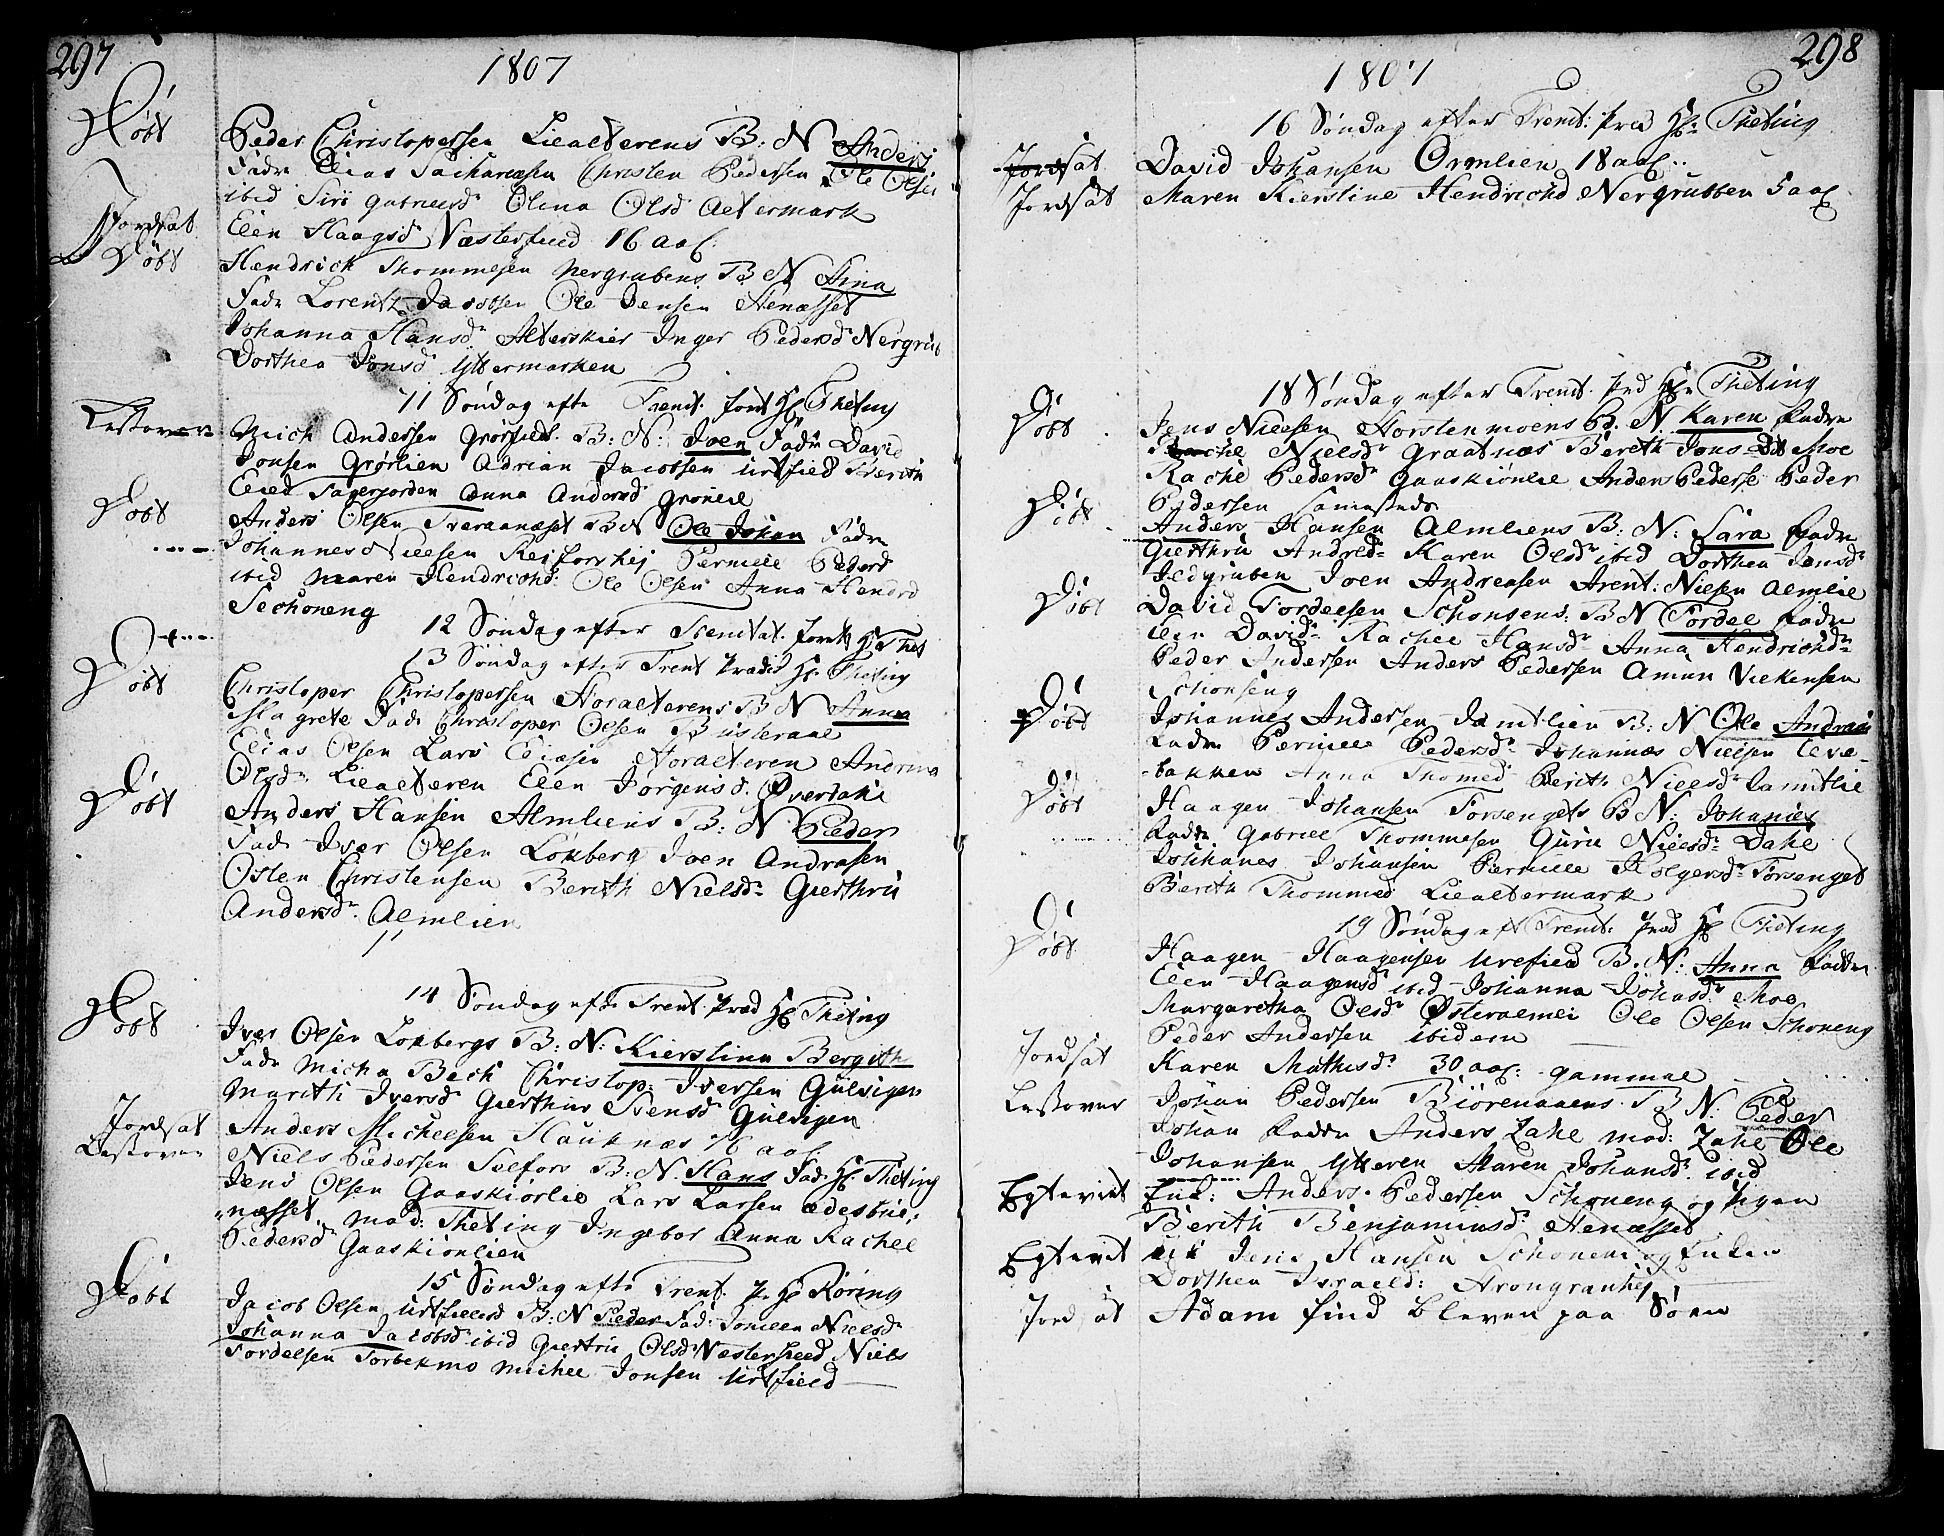 297
1807
Døbt Peder Christopersen Liealterens B: N Anders
Fadr Elias Sachariæsen Christen Pedersen Ole Olsen
ibid Siri Gabrielsd Elina Olsd Altermark
Jordsat Elen Haagsd Væsterfield 16 aar:
Døbt Hendrick Thommesen Nergrubens B N Stina
Fadr Lorentz Jacobsen Ole Jensen Stenæsset
Johanna Hansdr Alterskier Inger Pedersdr Nergrub
Dorthea Jonsd Yttermarken
11 Søndag efte Trenit: forret H: Theting
Lestover Mich Andersen Grørfield B: N: Joen Fadr David
Jonsen Grørlien Adrian Jacobsen Urtfield Berith
Elied Fagerjorden Anna Andersd Grønlie
Døbt Anders Olsen Tveraanæset B N Ole Johan Fadr
Johannes Nielsen Reiforshej Pernille Pedersd
ibid Maren Hendrichsd: Ole Olsen Anna Hendrd
Schoneng
12 Søndag efter Trenitat. forret H: Thet
13 Søndag efter Trent prædic H: Theting
Døbt Christoper Christopersen Noralterens B N Anna
Magrete Fadr Christoper Olsen Busteraae
Elias Olsen Lars Eliæsen Noralteren Andrina
Olsdr Liealteren Elen Jørgensd. Øverdahl
Døbt Anders Hansen Almliens B: N Peder
Fadr Iver Olsen Loxberg Joen Andrasen
Osten Christensen Berith Nielsdr Gierthru
Andersdr. Almlien
14 Søndag efte Trent: præd H: Theting
Døbt Iver Olsen Loxbergs B: N: Kierstina Bergith
Fadr Micha Bech Christop: Iversen Gulsigen
Marith Iversd Gierthru Svensd Gulsigen
Jordsat Anders Michelsen Hauknæs 16 aar
Lestover Niels Pedersen Selfors B: N. Hans Fad: H: Theting
Jens Olsen Gaaskiørlie Lars Larsen
næsset, Mad: Theting Ingebor Anna Rachel
Pedersd Gaaskiønlien
15 Søndag efte Trent. Pr H: Røring
Døbt Jacob Olsen Urtfields B: N Peder Fad: Nielsd
Johanna Jacobsd ibid Giertru Olsd Næsterfield Niels
Tordelsen Torbekmo Michel Jonsen Urtfield
298
1807
16 Søndag efter Trenit: Præd H: Theting
Jordsat David Johansen Ørmlien 18 aar:
Jordsat Maren Kierstine Hendrichd Nergrubben 5 aar
18 Søndag efter Trenit. Præd H: Theting
Døbt Jens Nielsen Horstenmoens B. N. Karen Fadr
Rachel Nielsdr Graatnæs Berith Jonsdr Moe
Rachel Pedersd Gaaskiønlie Anders Pederse Peder
Pedersen samesteds
Døbt Anders Hansen Almliens B: N: Sara Fadr
Gierthru Andredr Karen Olsdr ibid Dorthea Jonsdr
Ildgruben Joen Andreasen Arent: Nielsen Almlie
Døbt David Tordelsen Schonsens: B N Tordel Fadr
Elen Davidr Rachel Hansdr Anna Hendrichdr
Peder Andersen Anders Pedersen Amun Velkensen
Schonseng
Døbt Johannes Andersen Jamtlien B: N Ole Andrias
Fadr Pernille Pedersdr Johannes Nielsen Elve-
bakken Anna Thomed Berith Nielsdr Jamtlie
Døbt Haagen Johansen Forsengets B N: Johanes
Fadr Gabriel Thommesen Guru Nielsdr: Dahl
Johanes Johansen Pernille Holgersdr Forsenget
Berith Thommed Liealtermark
19 Søndag eft Trent: Præd H: Theting
Døbt Haagen Haagensen Urefield B. N: Anna Fadr
Elen Haagensd ibid Johanna Johasdr Moe
Margaretha Olsdr Østeralmei Ole Olsen Schoneng
Peder Andersen ibidem
Jordsat Karen Mathisdr 30 aar: gammel
Lestover Johan Pedersen Biørenaaens B N: Peder
Johan Fadr Anders Zahl Mad: Zahl Ole
Johansen Ytteren Maren Johansdr ibid
Egteviet Enk: Anders Pedersen Schoneng og Pigen
Berith Benjaminsdr Stenæsset
Egteviet Jens Hansen Schonene og Enken
Dorthea Israelsd: Arongranhej
Jord at Adam find bleven paa Søen